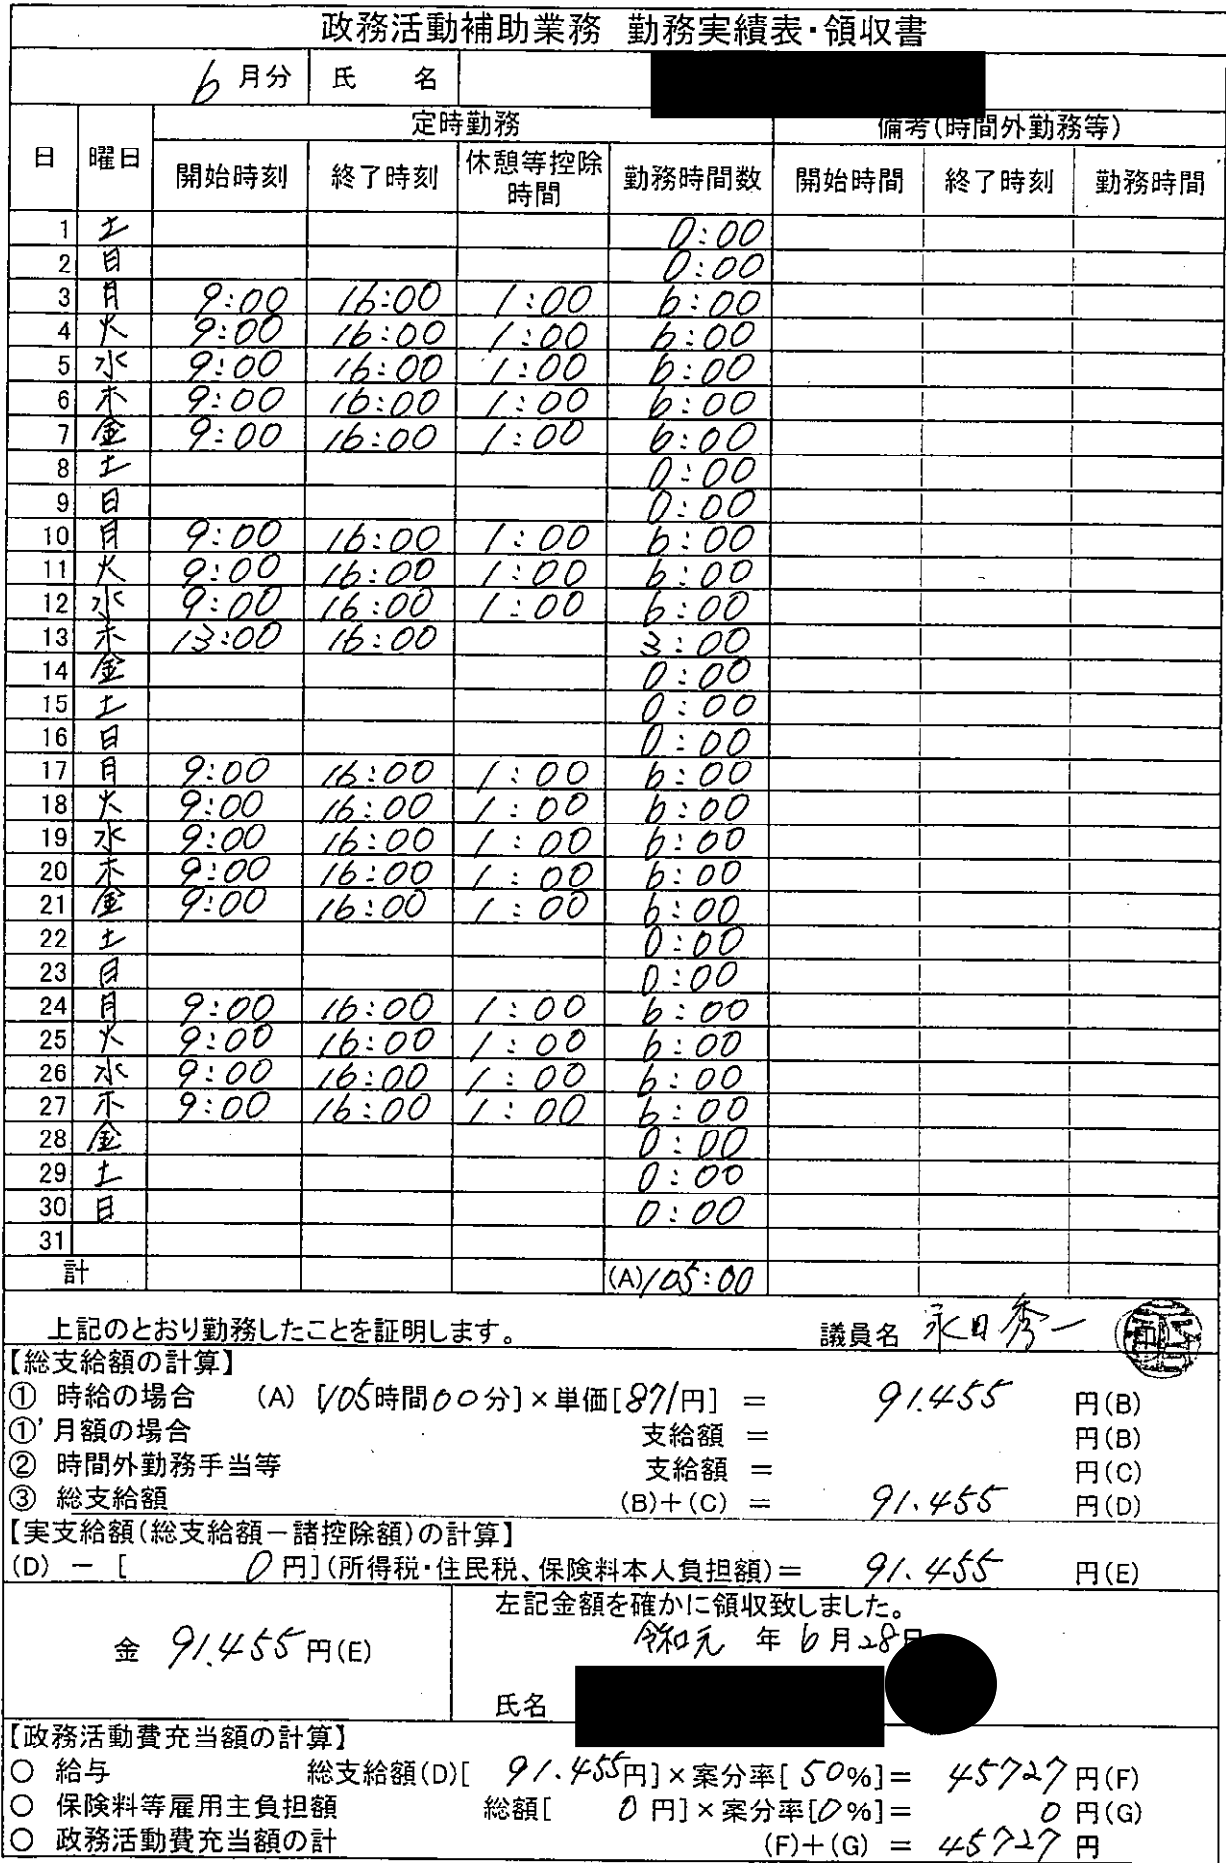 政務活動補助業務 勤務実績表・領収書
6 月分 氏 名
定時勤務 備考(時間外勤務等)
日 曜日 開始時刻 終了時刻 休憩等控除時間 勤務時間数 開始時間 終了時刻 勤務時間
1 土 0:00
2 日 0:00
3 月 9:00 16:00 1:00 6:00
4 火 9:00 16:00 1:00 6:00
5 水 9:00 16:00 1:00 6:00
6 木 9:00 16:00 1:00 6:00
7 金 9:00 16:00 1:00 6:00
8 土 0:00
9 日 0:00
10 月 9:00 16:00 1:00 6:00
11 火 9:00 16:00 1:00 6:00
12 水 9:00 16:00 1:00 6:00
13 木 13:00 16:00 3:00
14 金 0:00
15 土 0:00
16 日 0:00
17 月 9:00 16:00 1:00 6:00
18 火 9:00 16:00 1:00 6:00
19 水 9:00 16:00 1:00 6:00
20 木 9:00 16:00 1:00 6:00
21 金 9:00 16:00 1:00 6:00
22 土 0:00
23 日 0:00
24 月 9:00 16:00 1:00 6:00
25 火 9:00 16:00 1:00 6:00
26 水 9:00 16:00 1:00 6:00
27 木 9:00 16:00 1:00 6:00
28 金 0:00
29 土 0:00
30 日 0:00
31
計 (A)105:00
上記のとおり勤務したことを証明します。 議員名 永田秀一
【総支給額の計算】
① 時給の場合 (A) [105時間00分]×単価[871円] = 91.455 円(B)
①'月額の場合 支給額 = 円(B)
② 時間外勤務手当等 支給額 = 円(C)
③ 総支給額 (B)+(C) = 91.455 円(D)
【実支給額(総支給額-諸控除額)の計算】
(D) - [ 0円](所得税・住民税、保険料本人負担額)= 91.455 円(E)
左記金額を確かに領収致しました。
金 91.455円(E) 令和元 年 6月28日
氏名
【政務活動費充当額の計算】
○ 給与 総支給額(D)[ 91.455円]×案分率[ 50%]= 45727円(F)
○ 保険料等雇用主負担額 総額[ 0 円]×案分率[0%]= 0 円(G)
○ 政務活動費充当額の計 (F)+(G) = 45727 円